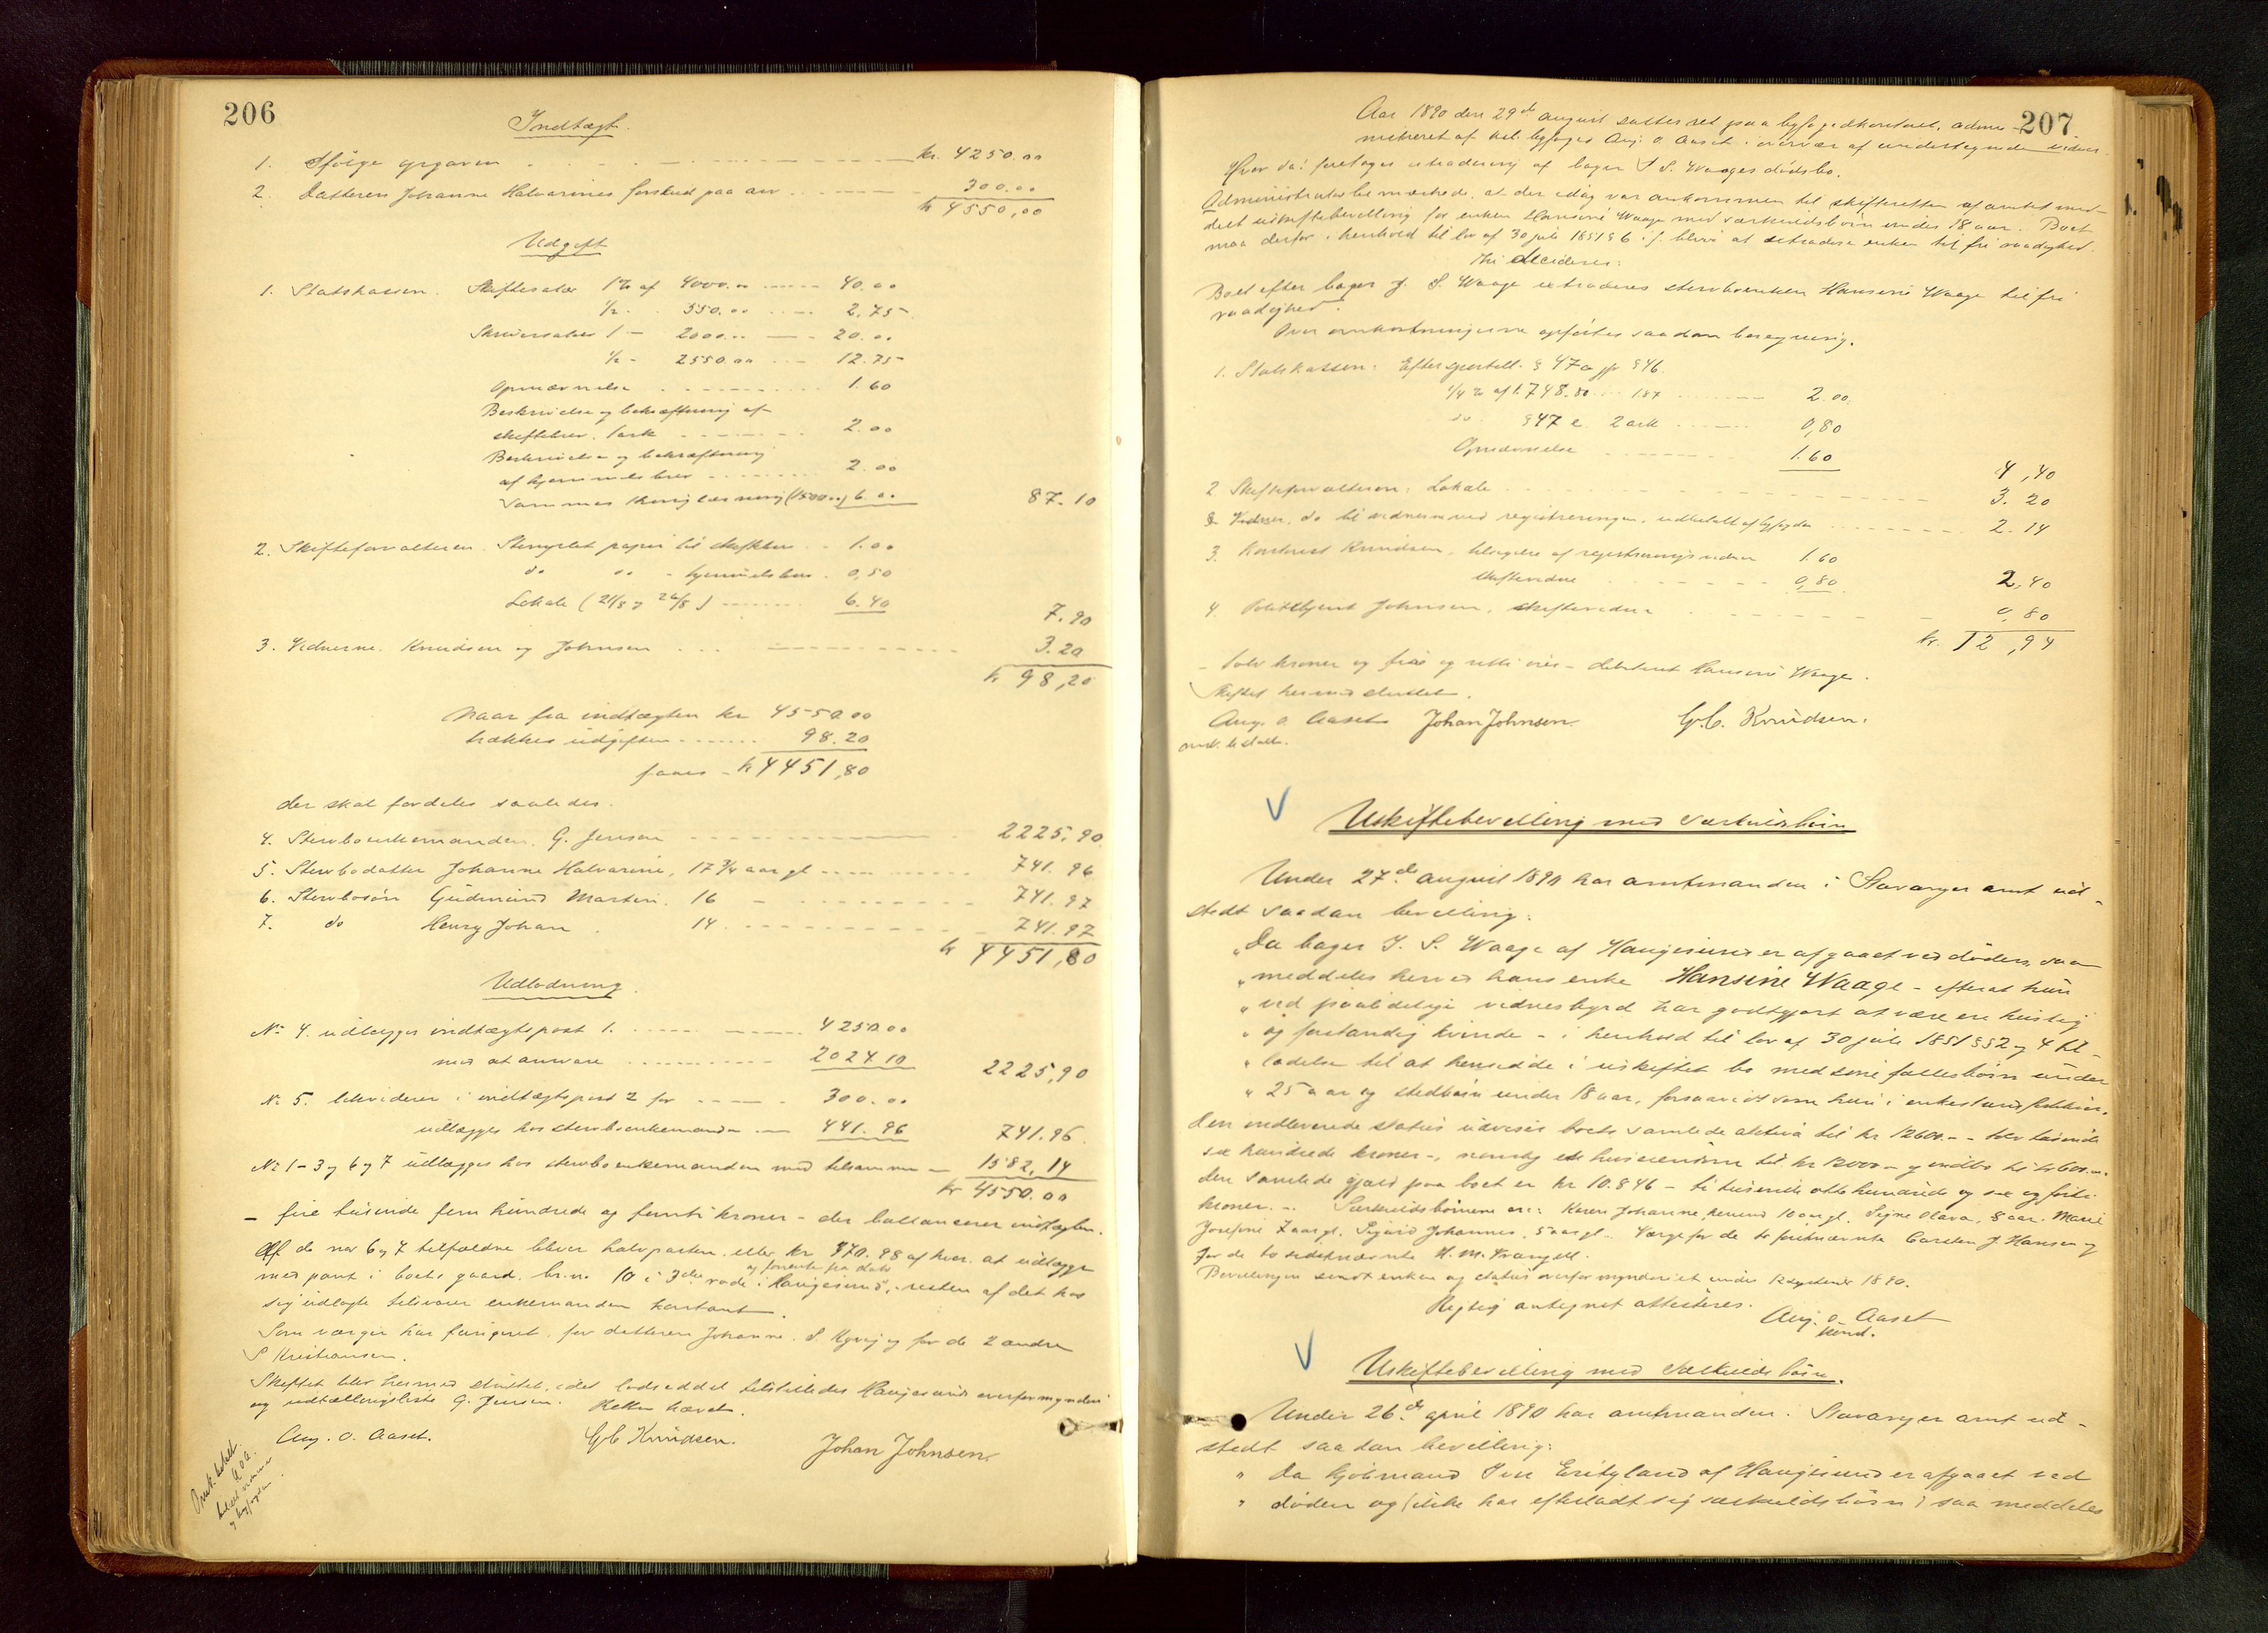 206
Indtægt.
1. Ifölge opgaven kr. 4250.00
2. Datteren Johanne Halvarines forskud paa arv 300.00
kr 4550,00
Udgift
1. Statskassen. Skiftesalær 1% af 4000.00 40.00
½ - 550.00 2.75
Skriversalær 1 - 2000.00 20.00
½ - 2550.00 12.75
Opnævnelse 1.60
Beskrivelse og bekræftning af
skiftebrev. 1 ark 2.00
Beskrivelse og bekræftning
af hjemmelsbrev 2.00
Sammes thinglæsning (1500..) 6.00 87.10
2. Skifteforvalteren. Stemplet papir til skiftebrev 1.00
do do - hjemmelsbrev 0,50
Lokale (21/8 og 26/8) 6.40
7.90
3. Vidnerne. Knudsen og Johnsen 3.20
kr 98,20
Naar fra indtægten kr 4550.00
trækkes udgiften 98.20
faaes - kr 4451,80
der skal fordeles saaledes.
4. Stervboenkemanden, G. Jensen 2225,90
5. Stervbodatter Johanne Halvarine, 17 ¾ aar gl 741.96
6. Stervbosön Gudmund Martin. 16 - 741.97
7. do Henry Johan 14 741.97
kr 4451,80
Udlodning.
No 4. udlægges indtægtspost 1. 4250.00
med at ansvare 2024.10
2225,90
No 5. likviderer i indtægtspost 2 for 300.00
udlægges hos stervboenkemanden 441.96 741.96.
No 1-3 og 6 og 7 udlægges hos stervboenkemanden med tilsammen 1582,14
kr 4550.00
- fire tusinde fem hundrede og femti kroner - der ballancerer indtægten.
Af de nor 6 og 7 tilfaldne bliver halvparten, eller kr 370.98 af hver at udlægge
og forrente fra dato
med pant i boets gaard, br.no 10 i 3die rode i Haugesund, - resten af det hos
sig udlagte tilsvarer enkemanden kontant.
Som værger har fungeret, for datteren Johanne. S. og for de 2 andre
S Kristiansen.
Skiftet blev hermed sluttet, idet lodseddel tilstilledes Haugesunds overformynderi
og udtællingsliste G. Jensen. Retten hævet.
Aug. O. Aaset. Gb Knudsen. Johan Johnsen.
Omk. betalt.
AOA.
207
Aar 1890 den 29de august sattes ret paa byfogedkontoret, admi-
nistreret af kst. byfoged Aug. O. Aaset i overvær af undertegnede vidner.
Hvor da: foretoges extradering af bager J S. Waages dödsbo.
Administrator bemærkede, at der idag var ankommen til skifteretten af amtet med-
delt uskiftebevilling for enken Hansine Waage med særkuldsbörn under 18 aar. Boet
maa derfor i henhold til lov af 30 juli 1851 § 6 i f. blive at extradere enken til fri raadighed.
Thi decideres:
Boet efter bager J. S. Waage extraderes stervboenken Hansine Waage til fri
raadighed.
Over omkostningerne opförtes saadan beregning.
1. Statskassen: Efter sportell. § 47 a jfr § 46.
¼ % af 1.748.80 187 2.00.
do. § 47 c. 2 ark 0,80
Opnævnelse 1.60
4,40
2 Skifteforvalteren, Lokale 3.20
Vidner, do til vidnerne ved registreringen, udbetalt af byfogden 2.14
3. Kontorist Knudsen, tilsigelse af registreringsvidner 1.60
skiftevidne 0,80 2,40
4. Politibetjent Johnsen, skiftevidne 0,80
kr. 12,94
- tolv kroner og fire og nitti öre - debiteret Hansine Waage.
Skiftet hermed sluttet.
Aug. O. Aaset Johan Johnsen Gb. Knudsen.
omk. betalt.
Uskiftebevilling med særkuldsbörn
Under 27de august 1890 har amtmanden i Stavanger amt ud-
stedt saadan bevilling:
"Da bager J. S. Waage af Haugesund er afgaaet ved döden, saa
"meddeles herved hans enke Hansine Waage - efterat hun
"ved paalidelige vidnesbyrd har godtgjort at være en huslig
"og forstandig kvinde - i henhold til lov af 30 juli 1851 §§ 2 og 4 til-
"ladelse til at hensidde i uskiftet bo med sine fællesbörn under
"25 aar og stedbörn under 18 aar, forsaavidt som hun i enkestand forbliver.
Den indleverede status udviser boets samlede aktiva til kr 12600.- - tolv tusinde
sex hundrede kroner -, nemlig huseiendom til kr 12000 - og indbo til kr 600.-.
den samlede gjæld paa boet er kr 10.846 - ti tusinde otte hundrede og sex og förti
kroner. -. Særkuldsbörnene er: Karen Johanne, 10 aar gl. Signe Olava, 8 aar. Marie
Josefine 7 aar gl. Sigurd Johannes, 5 aar gl. Værge for de to förstnævnte Carsten J. Hansen og
for de to sidstnævnte H. M. Wrangell.
Bevillingen sendt enken og status overformynderiet under 12 september 1890.
Rigtig antegnet attesteres.
Aug. O. Aaset
kst.
Uskiftebevilling med særkuldsbörn.
Under 26de april 1890 har amtmanden i Stavanger amt ud-
stedt saadan bevilling:
"Da kjöbmand af Haugesund er afgaaet ved
"döden og (ikke har efterladt sig særkuldsbörn) saa meddeles